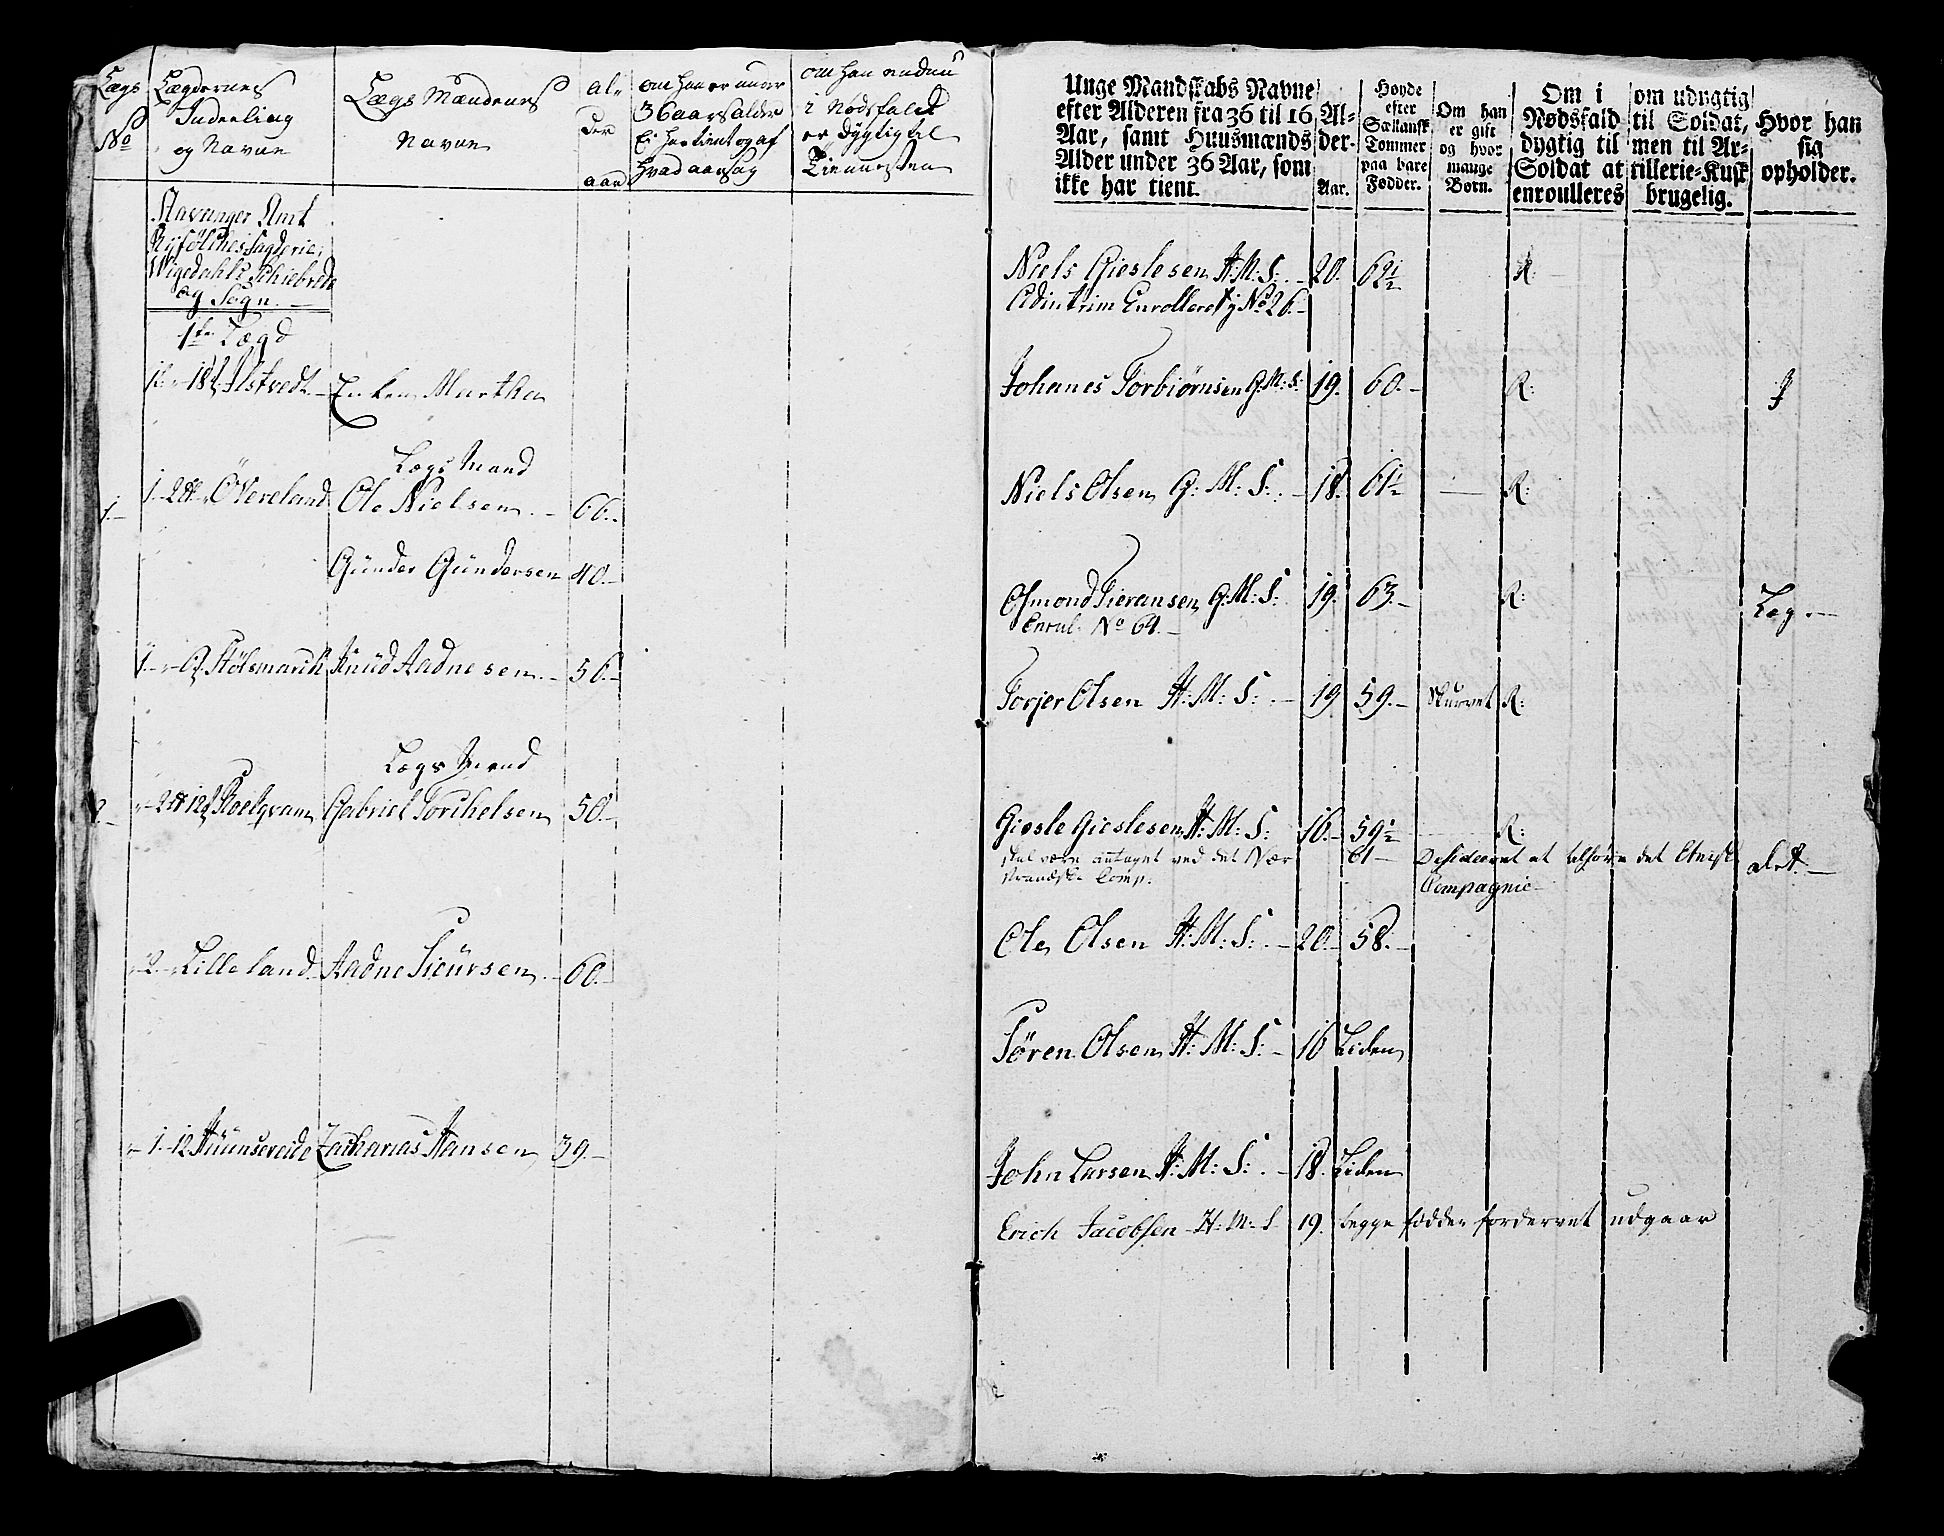 Lægs
No
Lægdernes
Indeeling
og Navne
Lægs Mændenes
Navne
al-
der
aar
om han er under
36 aars alder
Ei har tient og af
hvad aarsag
om han endnu
i Nødsfald
er dygtig til
Tienesten
Stavanger Amt
Ryfølches fogderie,
Wigedahls Schibrede
og Sogn.
1ste Lægd
Ilstvedt Enken Martha
Lægs Mand
1. Øvereland Ole Nielsen 66.
Günder Gündersen 40.
Stølsmarch Knüd Aadnesen 56.
Lægs Mand
2. Gabriel Torchelsen 50.
2. Lilleland Aadne Siüursen 60.
1. 12 Zacharias Hansen 39.
Unge Mandskabs Navne
efter Alderen fra 36 til 16
Aar, samt Huusmænds
Alder under 36 Aar, som
ikke har tient.
Al-
der.
Aar.
Høyde
efter
Sællansk
Tommer
paa bare
Fødder.
Om han
er gift
og hvor
mange
Børn.
Om i
Nødsfald
dygtig til
Soldat at
enroulleres
om udygtig
til Soldat,
men til Ar-
tillerie-Kusk
brugelig.
Hvor han
sig
opholder.
Niels Gieslesen H. M: S: 20. 62½ R:
Enrolleret No 26.
Johanes Torbiørnsen G. M: S: 19. 60. R:
Niels Olsen G: M: S: 18. 61½ R:
Osmond Tieransen G. M: S: 19. 63. R: Læg.
Enrul. No 64.
Torjer Olsen H: M: S: 19 59. Skurvet R:
Giesle Gieslesen H: M: S: 16. 59½ R:
skal være antaget ved det Nær 61 Desideeret at tilhøre det Etniske
strandske Comp. Compagnie
Ole Olsen H: M: S: 20. 58.
Søren Olsen H: M: S: 16 Liden
John Larsen H: M: S: 18. Liden
Erich Jacobsen H: M: S 19. begge fødder fordervet udgaar